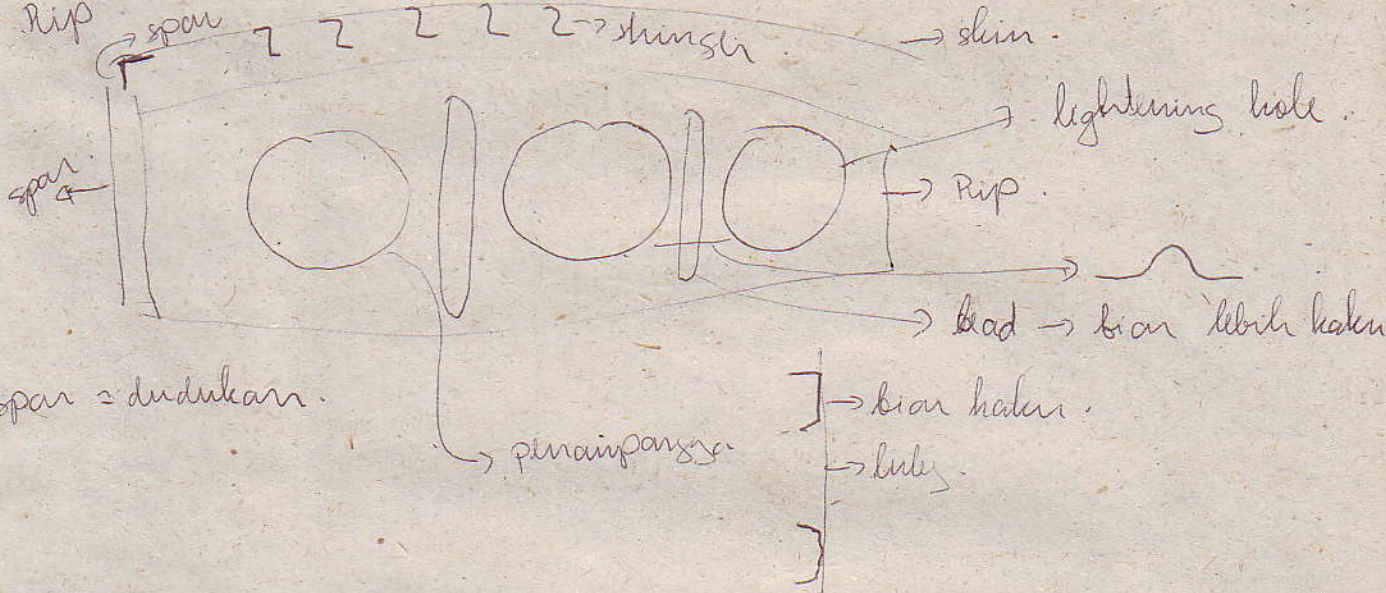 Rip
spar
stringer
skin.
lightening hole.
spar
Rip.
bead → biar lebih kaku
spar = dudukan.
biar kaku.